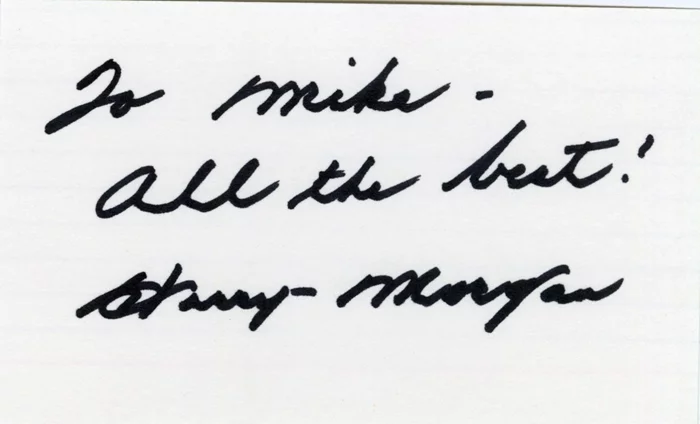 To Mike -
All the best!
Harry Morgan